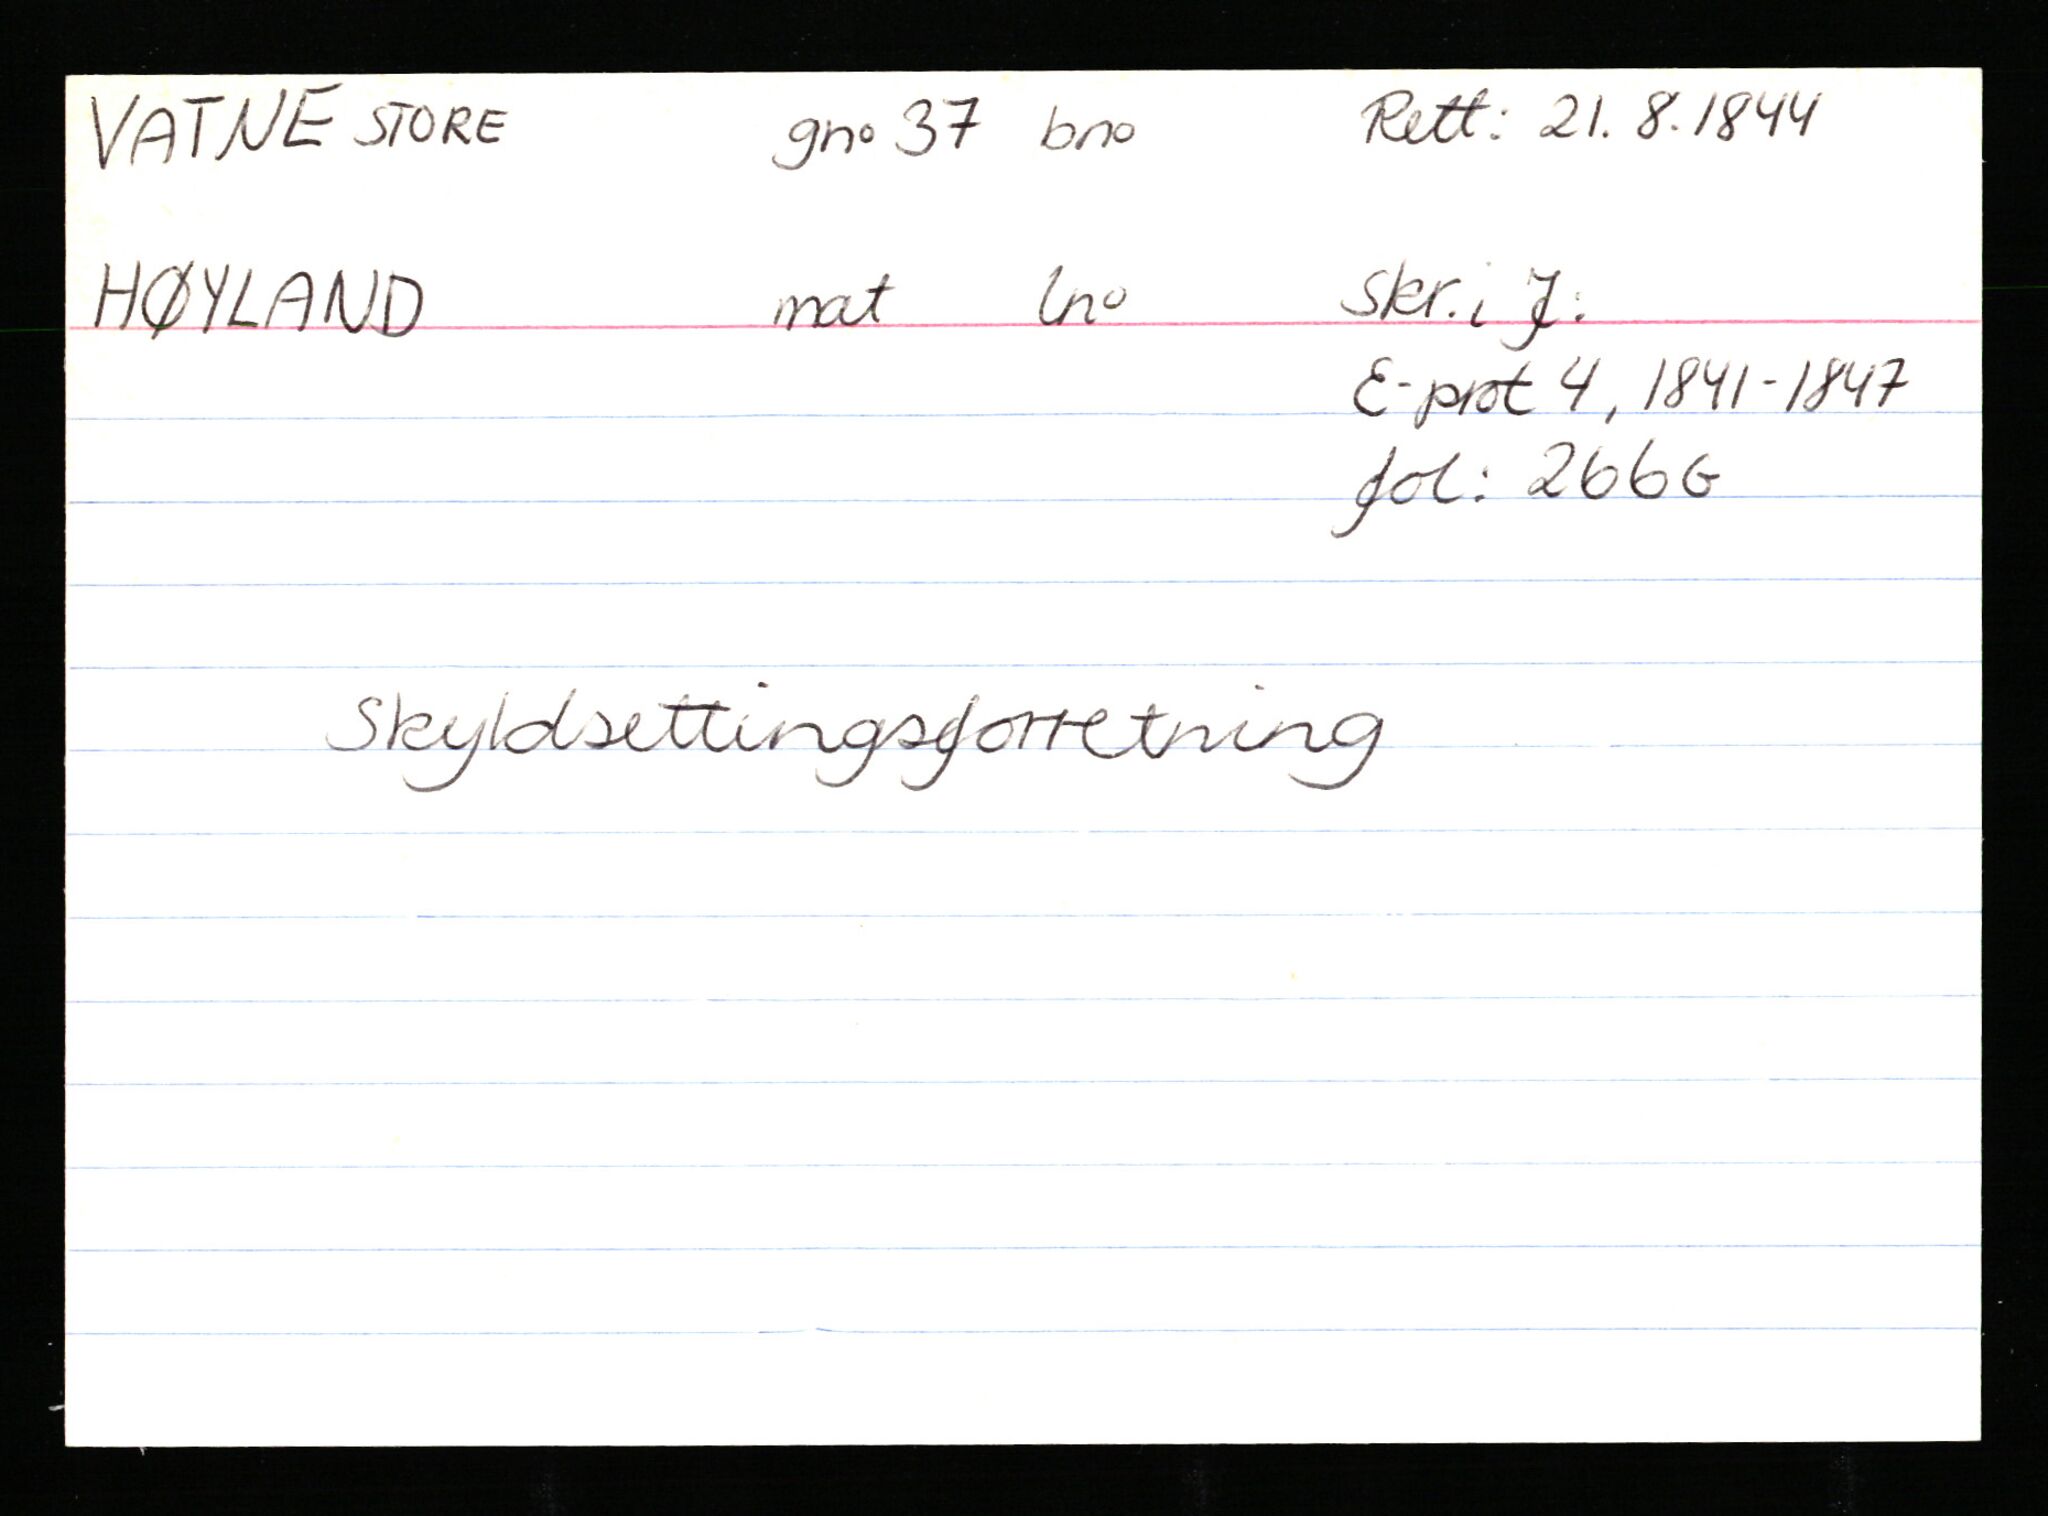 VATNE STORE gno 37 bno Rett: 21. 8. 1844
HØYLAND mat lno Skr. i J:
E-prot 4, 1841-1847
fol: 266 G
Skyldsettingsforretning